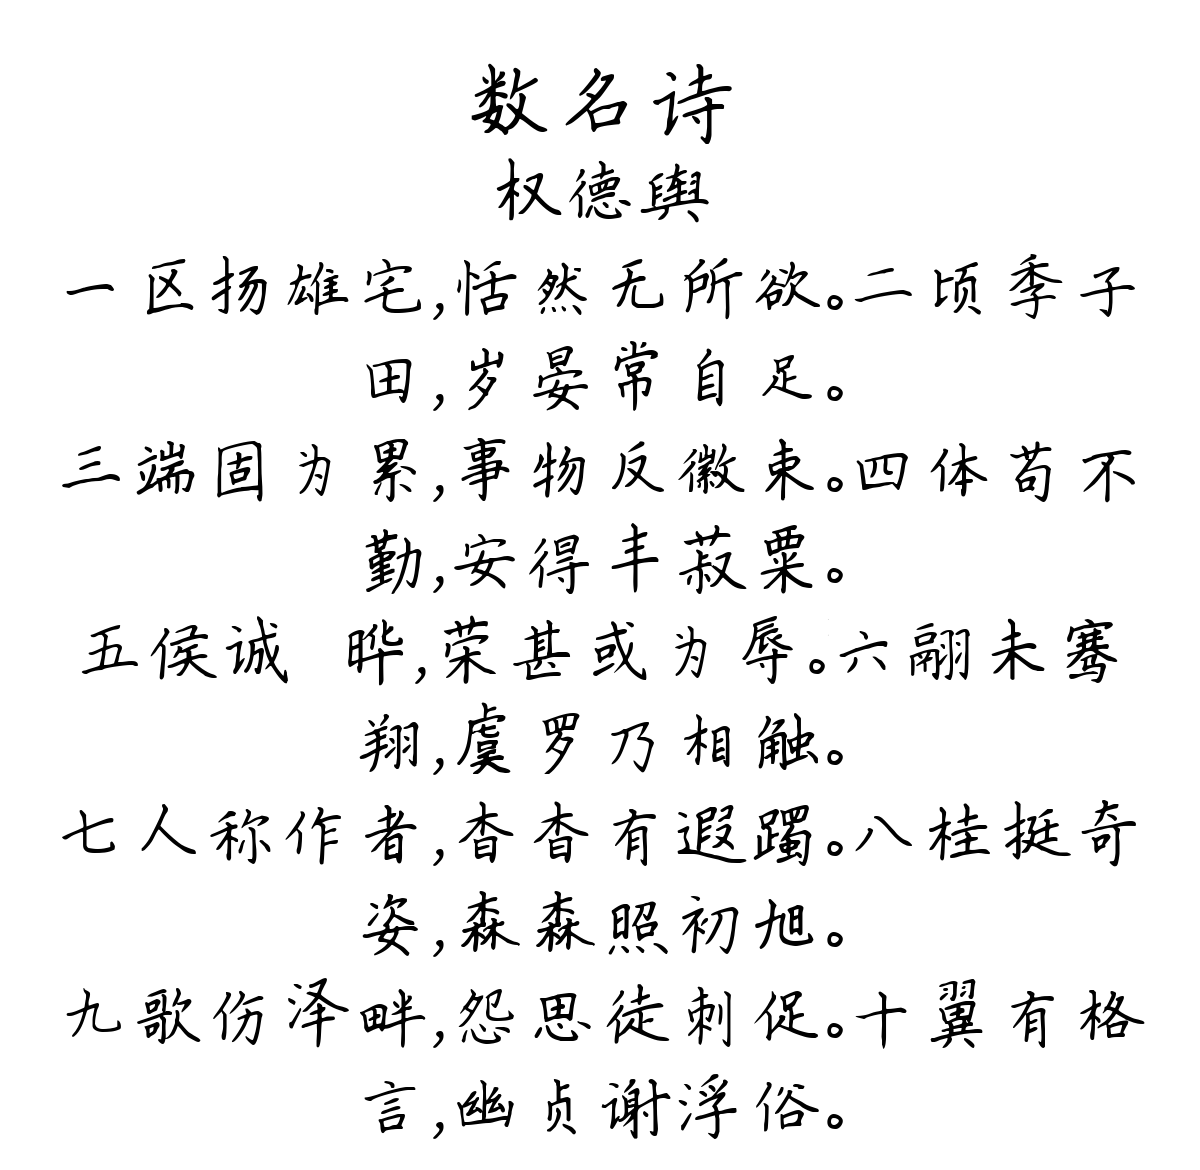 数名诗
权德舆
一区扬雄宅,恬然无所欲。二顷季子
田,岁晏常自足。
三端固为累,事物反徽束。四体苟不
勤,安得丰菽粟。
五侯诚 晔,荣甚或为辱。六翮未骞
翔,虞罗乃相触。
七人称作者,杳杳有遐躅。八桂挺奇
姿,森森照初旭。
九歌伤泽畔,怨思徒刺促。十翼有格
言,幽贞谢浮俗。